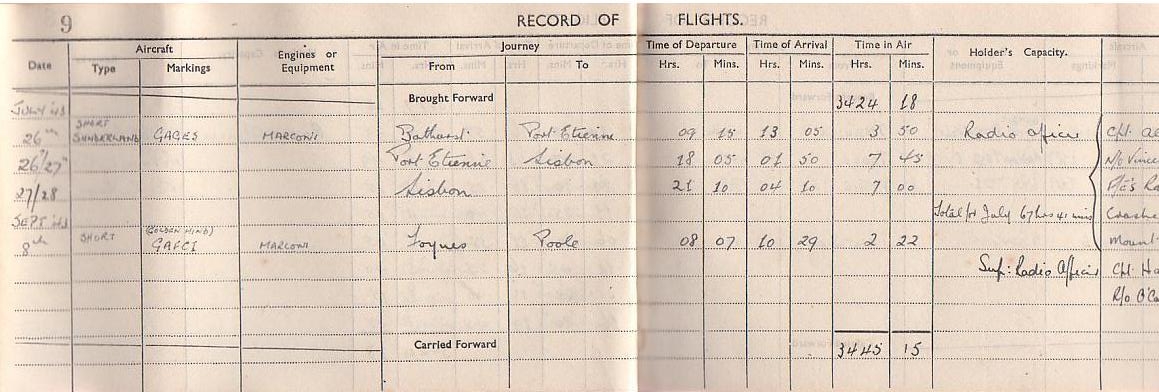 9 RECORD OF FLIGHTS.
Date Aircraft Engines or Equipment Journey Time of Departure Time of Arrival Time in Air Holder's Capacity.
Type Markings From To Hrs. Mins. Hrs. Mins. Hrs. Mins.
JULY '43 Brought Forward 3424 18
26th SHORT SUNDERLAND GAGES MARCONI Bathurst Port Etienne 09 15 13 05 3 50 Radio Officer Cpt.
26/27th Port Etienne Lisbon 18 05 01 50 7 45 R/O Vince
27/28 Lisbon 21 10 04 10 7 00
SEPT '43 Total for July 67 hrs 41 mins Crashe
8th SHORT (GOLDEN HIND) GAFCI MARCONI Foynes Poole 08 07 10 29 2 22 Mount
Sup: Radio Officer Cpt. Ha
R/o O'Ca
Carried Forward 3445 15